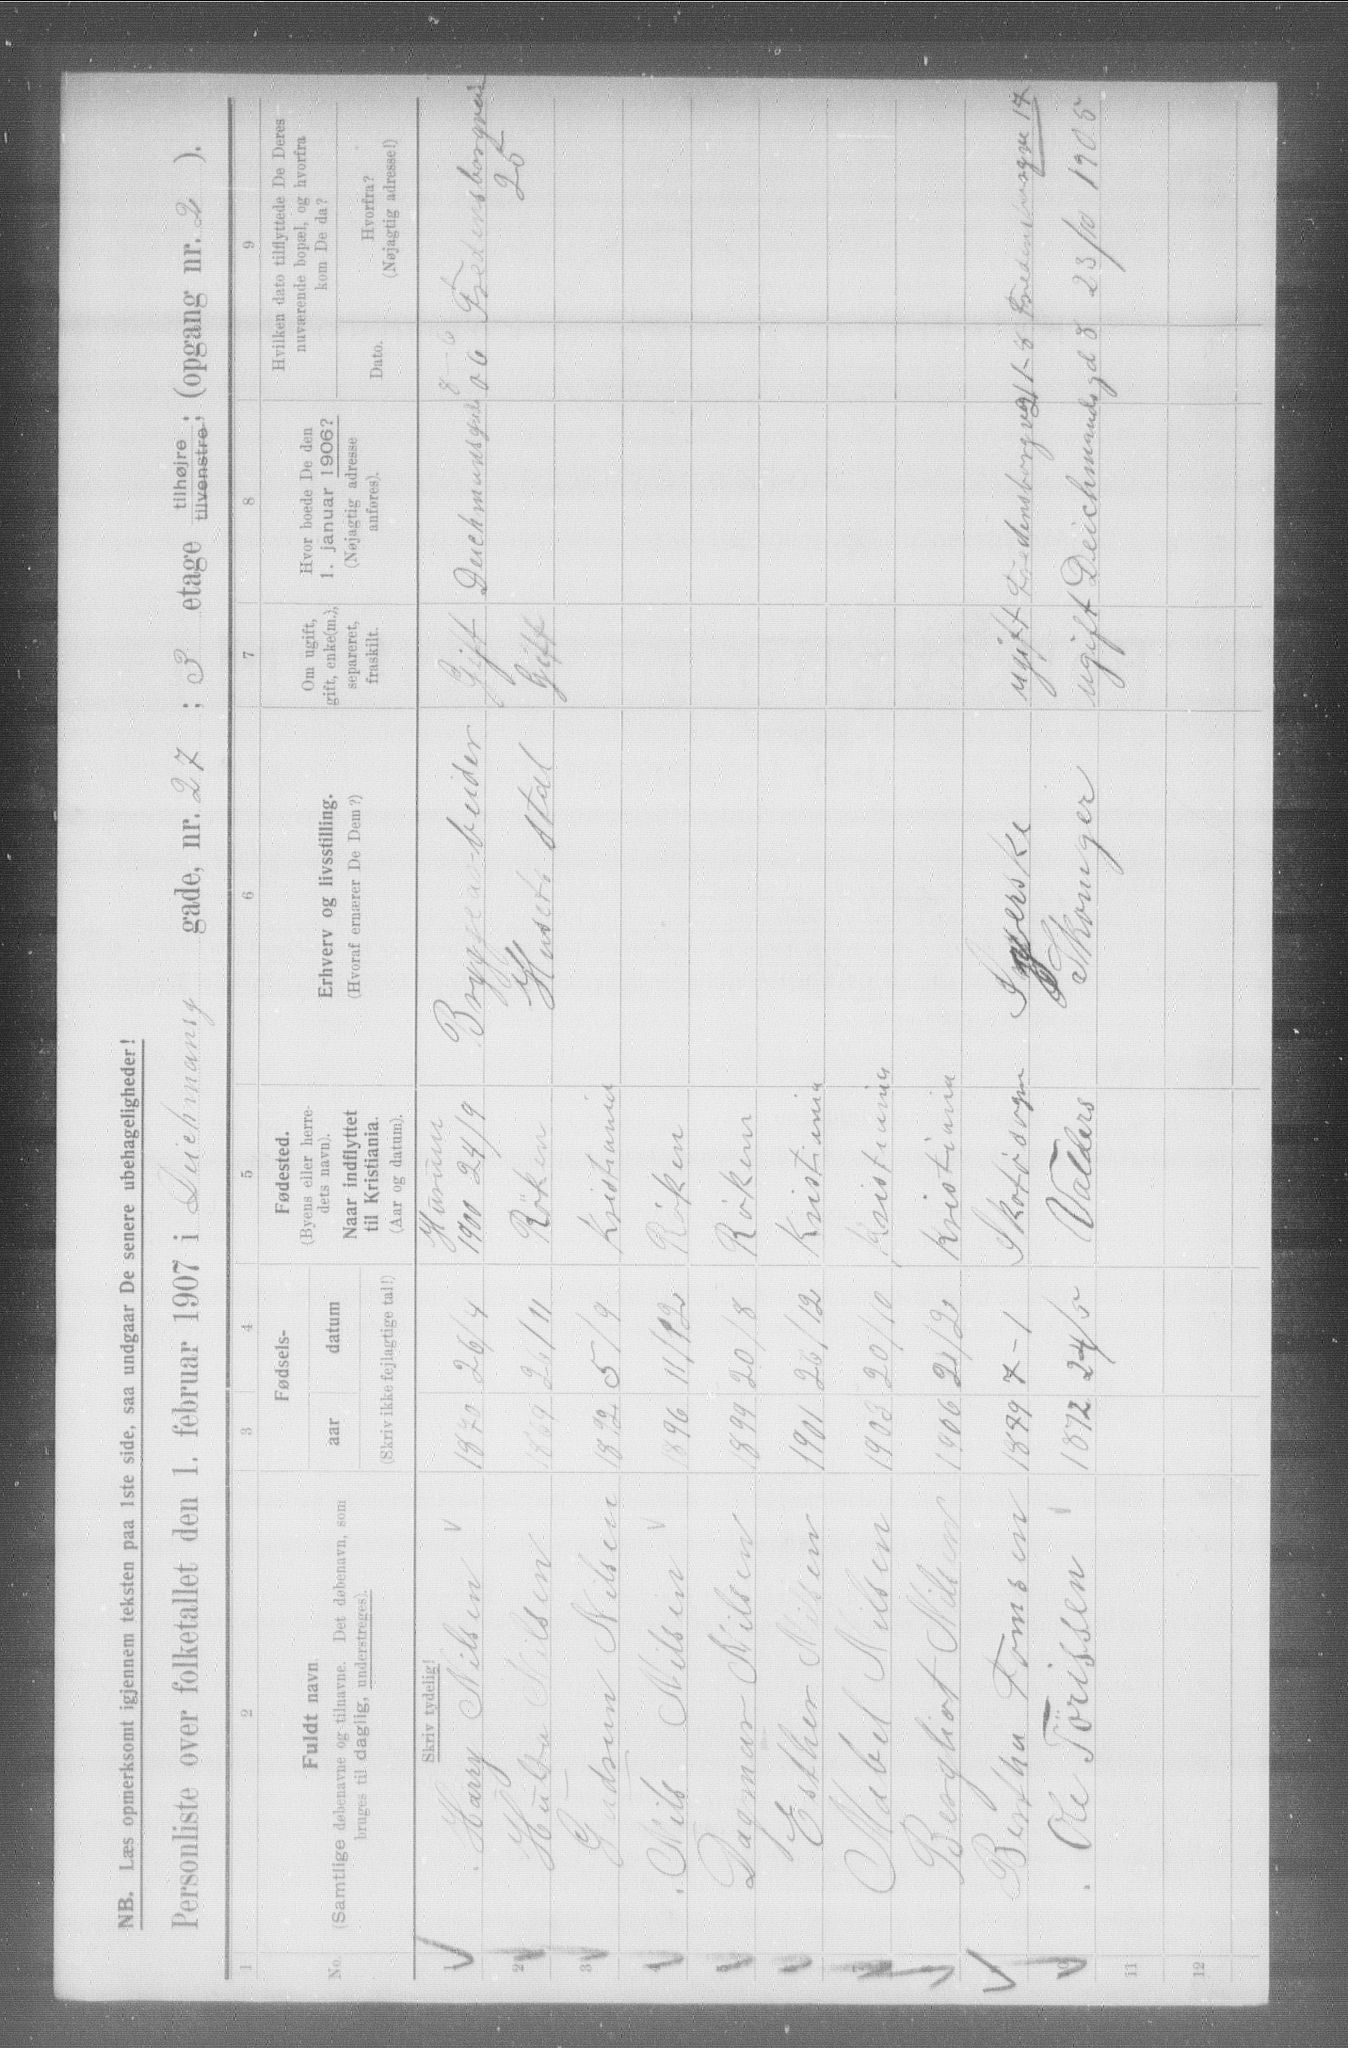 NB. Læs opmerksomt igjennem teksten paa 1ste side, saa undgaar De senere ubehageligheder!
Personliste over folketallet den 1. februar 1907 i Deichmansg gade, nr. 27 ; 3 etage tilhøjre tilvenstre; (opgang nr. 2 ).
1 2 3 4 5 6 7 8 9
No.
Fuldt navn
(Samtlige døbenavne og tilnavne. Det døbenavn, som
bruges til daglig, understreges).
Fødsels-
aar datum
(Skriv ikke fejlagtige tal!)
Fødested.
(Byens eller herre-
dets navn).
Naar indflyttet
til Kristiania.
(Aar og datum).
Erhverv og livsstilling.
(Hvoraf ernærer De Dem?)
Om ugift,
gift, enke(m.),
separeret,
fraskilt.
Hvor boede De den
1. januar 1906?
(Nøjagtig adresse
anføres).
Hvilken dato tilflyttede De Deres
nuværende bopæl, og hvorfra
kom De da?
Dato.
Hvorfra?
(Nøjagtig adresse!)
Skriv tydelig!
1 Harry Nilsen 1870 26/4 Hurum 1900 24/9 Bryggearbeider Gift Deichmansgade 06 Fredensborgvei 25
2 Hulda Nilsen 1869 26/11 Röken Husets stel Gift
3 Gudrun Nilsen 1892 5/9 Kristiania
4 Nils Nilsen 1896 11/12 Röken
5 Dagmar Nilsen 1899 20/8 Röken
6 Esther Nilsen 1901 26/12 Kristiania
7 Mabel Nilsen 1903 20/10 Kristiania
8 Bergliot Nilsen 1906 21/2 Kristiania
Bertha Tomsen 1879 7-1 Skotösogn ugift Fredensborgvei
10 Ole Törissen 1872 24/5 Valders Skomager ugift Deichmandsgd 8 23/10 1905
11
12